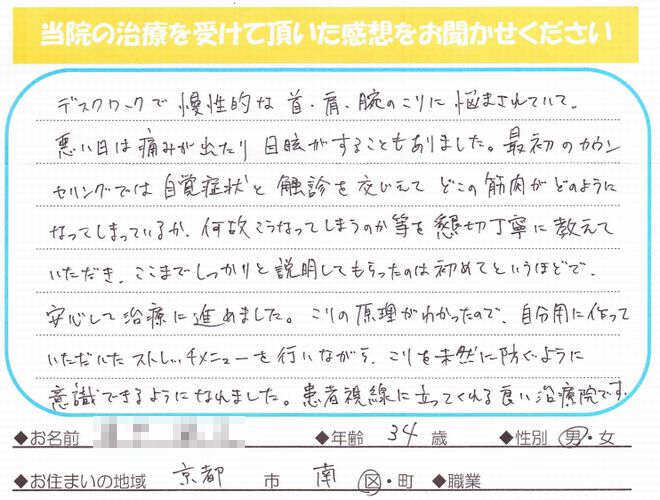 当院の治療を受けて頂いた感想をお聞かせください
デスクワークで慢性的な首・肩・腕のこりに悩まされていて、
悪い日は痛みが出たり目眩がすることもありました。最初のカウン
セリングでは自覚症状と触診を交じえてどこの筋肉がどのように
なってしまっているか、何故こうなってしまうのか等を懇切丁寧に教えて
いただき、ここまでしっかりと説明してもらったのは初めてというほどで、
安心して治療に進めました。こりの原理がわかったので、自分用に作って
いただいたストレッチメニューを行いながら、こりを未然に防ぐように
意識できるようになれました。患者視線に立ってくれる良い治療院です。
◆お名前 ◆年齢 34 歳 ◆性別 男・女
◆お住まいの地域 京都 市 南 区・町 ◆職業